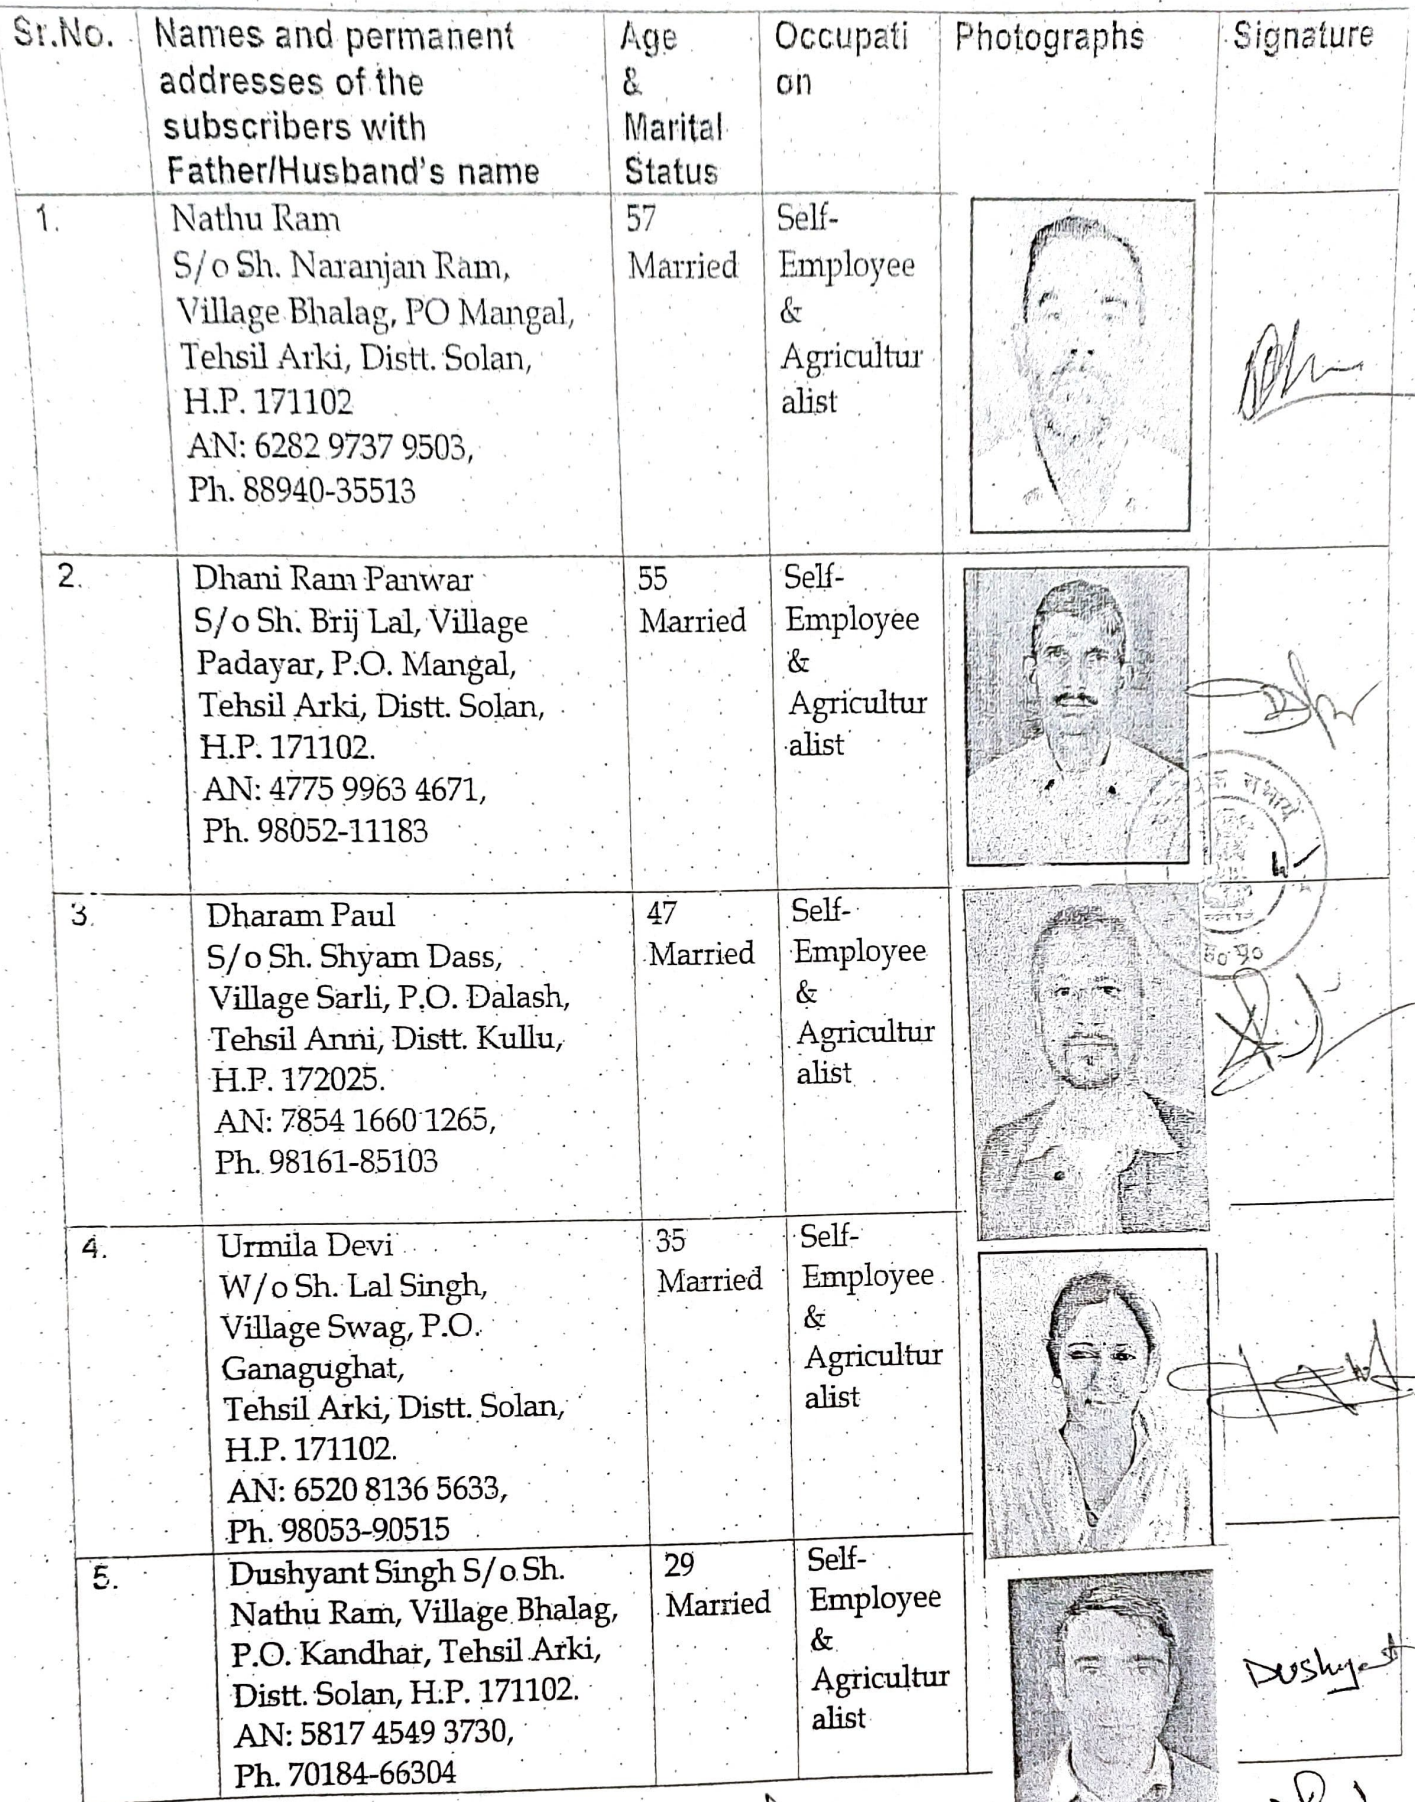 Sr.No.
Names and permanent
addresses of the
subscribers with
Father/Husband's name
Age
&
Marital
Status
Occupati
on
Photographs
Signature
1.
Nathu Ram
S/o Sh. Naranjan Ram,
Village Bhalag, PO Mangal,
Tehsil Arki, Distt. Solan,
H.P. 171102
AN: 6282 9737 9503,
Ph. 88940-35513
57
Married
Self-
Employee
&
Agricultur
alist
2.
Dhani Ram Panwar
S/o Sh. Brij Lal, Village
Padayar, P.O. Mangal,
Tehsil Arki, Distt. Solan,
H.P. 171102.
AN: 4775 9963 4671,
Ph. 98052-11183
55
Married
Self-
Employee
&
Agricultur
alist
3.
Dharam Paul
S/o Sh. Shyam Dass,
Village Sarli, P.O. Dalash,
Tehsil Anni, Distt. Kullu,
H.P. 172025.
AN: 7854 1660 1265,
Ph. 98161-85103
47
Married
Self-
Employee
&
Agricultur
alist
4.
Urmila Devi
W/o Sh. Lal Singh,
Village Swag, P.O.
Ganagughat,
Tehsil Arki, Distt. Solan,
H.P. 171102.
AN: 6520 8136 5633,
Ph. 98053-90515
35
Married
Self-
Employee
&
Agricultur
alist
5.
Dushyant Singh S/o Sh.
Nathu Ram, Village Bhalag,
P.O. Kandhar, Tehsil Arki,
Distt. Solan, H.P. 171102.
AN: 5817 4549 3730,
Ph. 70184-66304
29
Married
Self-
Employee
&
Agricultur
alist
Dushyant